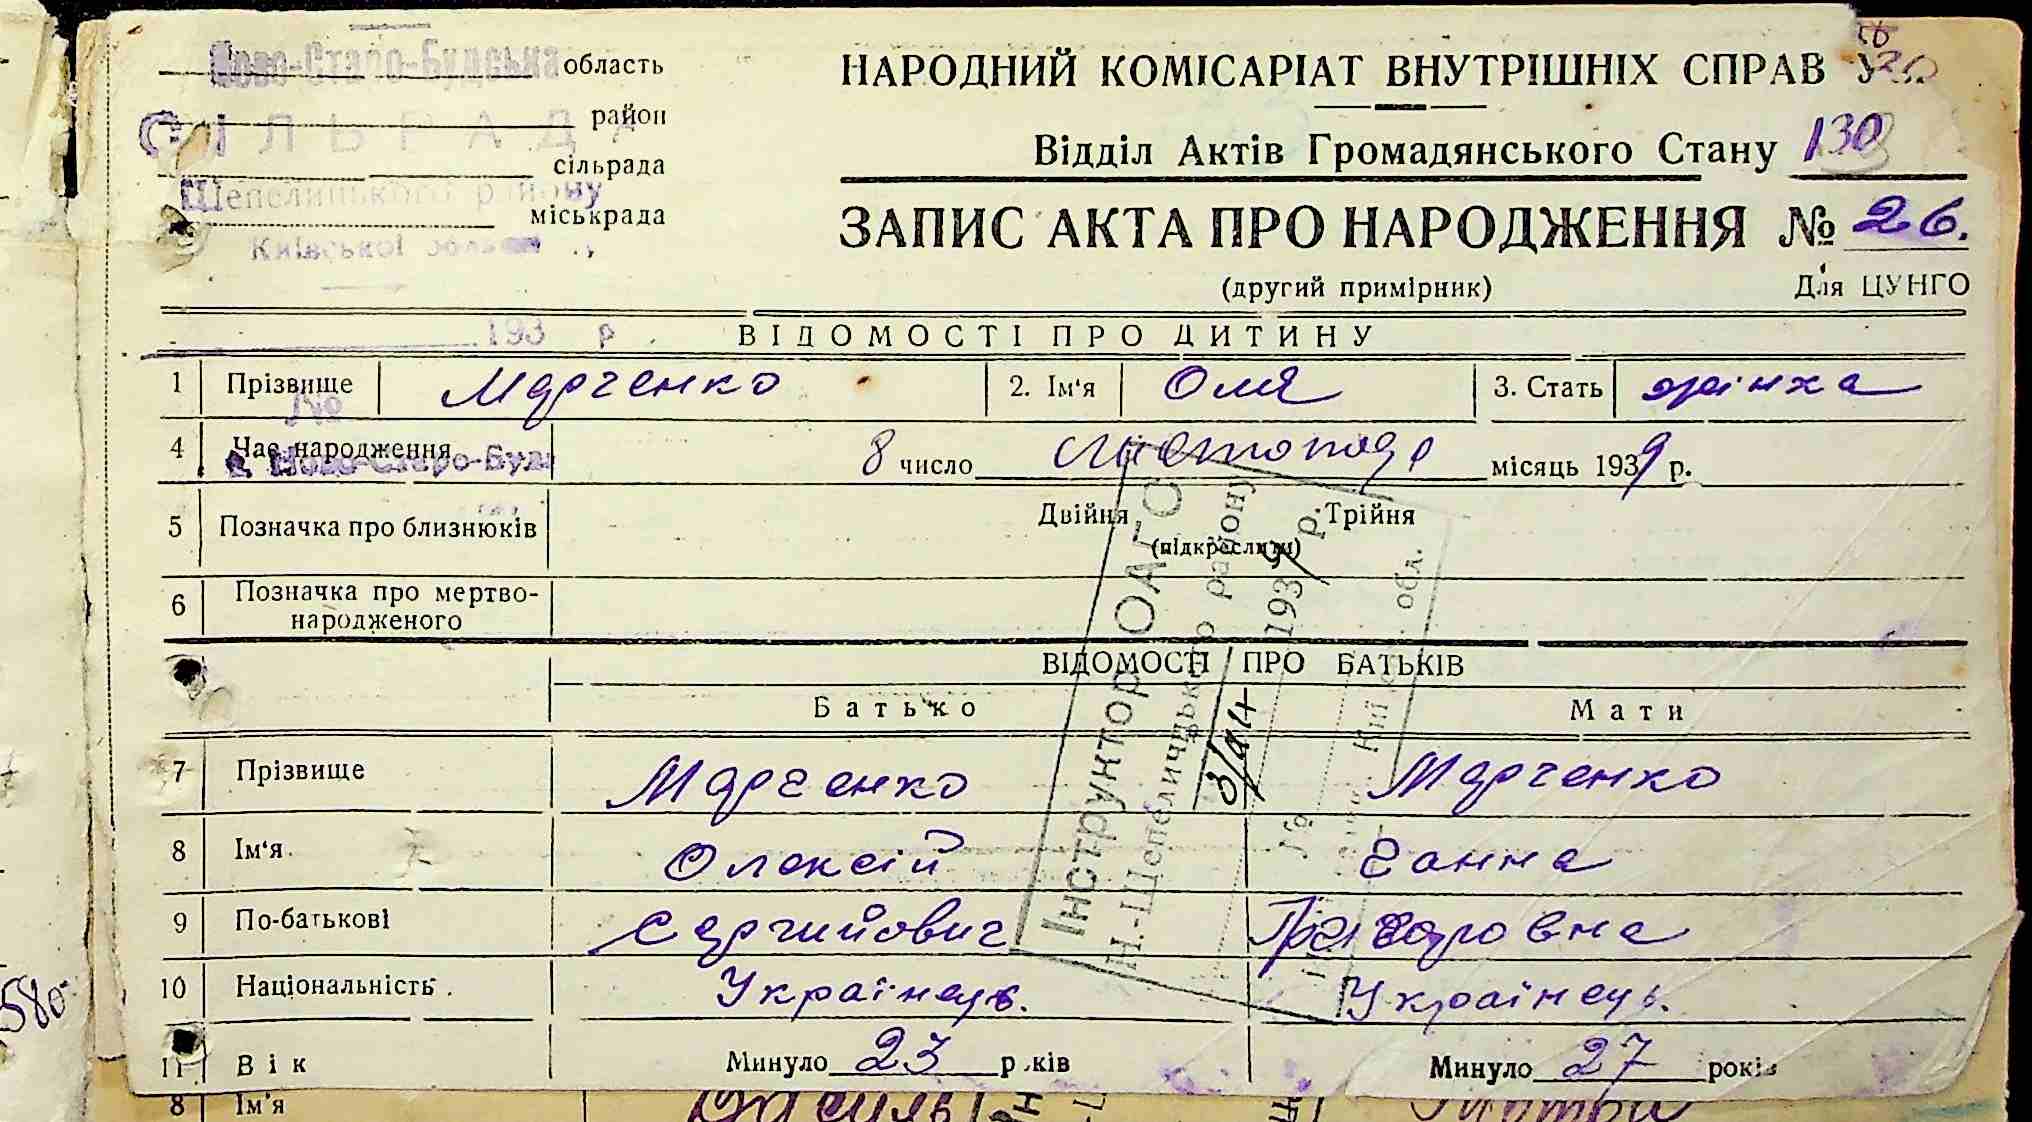 Ново-Старо-Будська область
СІЛЬРАДА район
сільрада
Шепелицького району
міськрада
Київської
193 р.
НАРОДНИЙ КОМІСАРІАТ ВНУТРІШНІХ СПРАВ
Відділ Актів Громадянського Стану 130
ЗАПИС АКТА ПРО НАРОДЖЕННЯ № 26.
(другий примірник) Для ЦУНГО
ВІДОМОСТІ ПРО ДИТИНУ
1 Прізвище Марченко 2. Ім'я Оля 3. Стать жінка
№
4 Час народження 8 число листопада місяць 1939 р.
с. Ново-Старо-Буда
5 Позначка про близнюків Двійня Трійня
(підкреслити)
6 Позначка про мертво-
народженого
ВІДОМОСТІ ПРО БАТЬКІВ
Батько Мати
7 Прізвище Марченко Марченко
8 Ім'я Олексій Ганна
9 По-батькові Сергийович
10 Національність Українець. Українець.
11 Вік Минуло 23 років Минуло 27 років
Інструктор ОАГС
Н.-Шепелицького району
193 р.
№
обл.
580
8 Ім'я